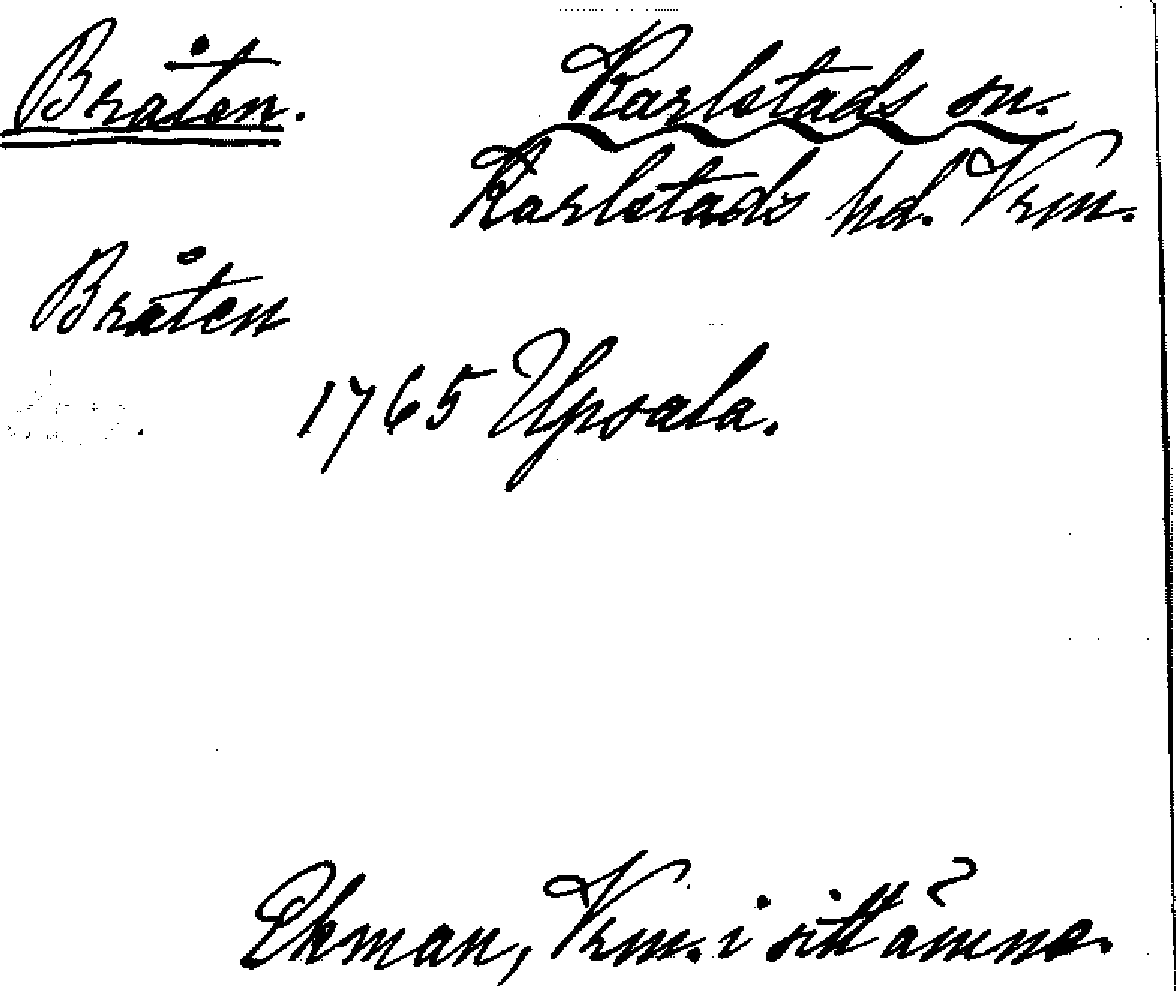 Bråten. Karlstads sn.
Karlstads hd. Vrm.
Bråten
1765 Upsala.
Ekman, Vrm. i sitt ämne.